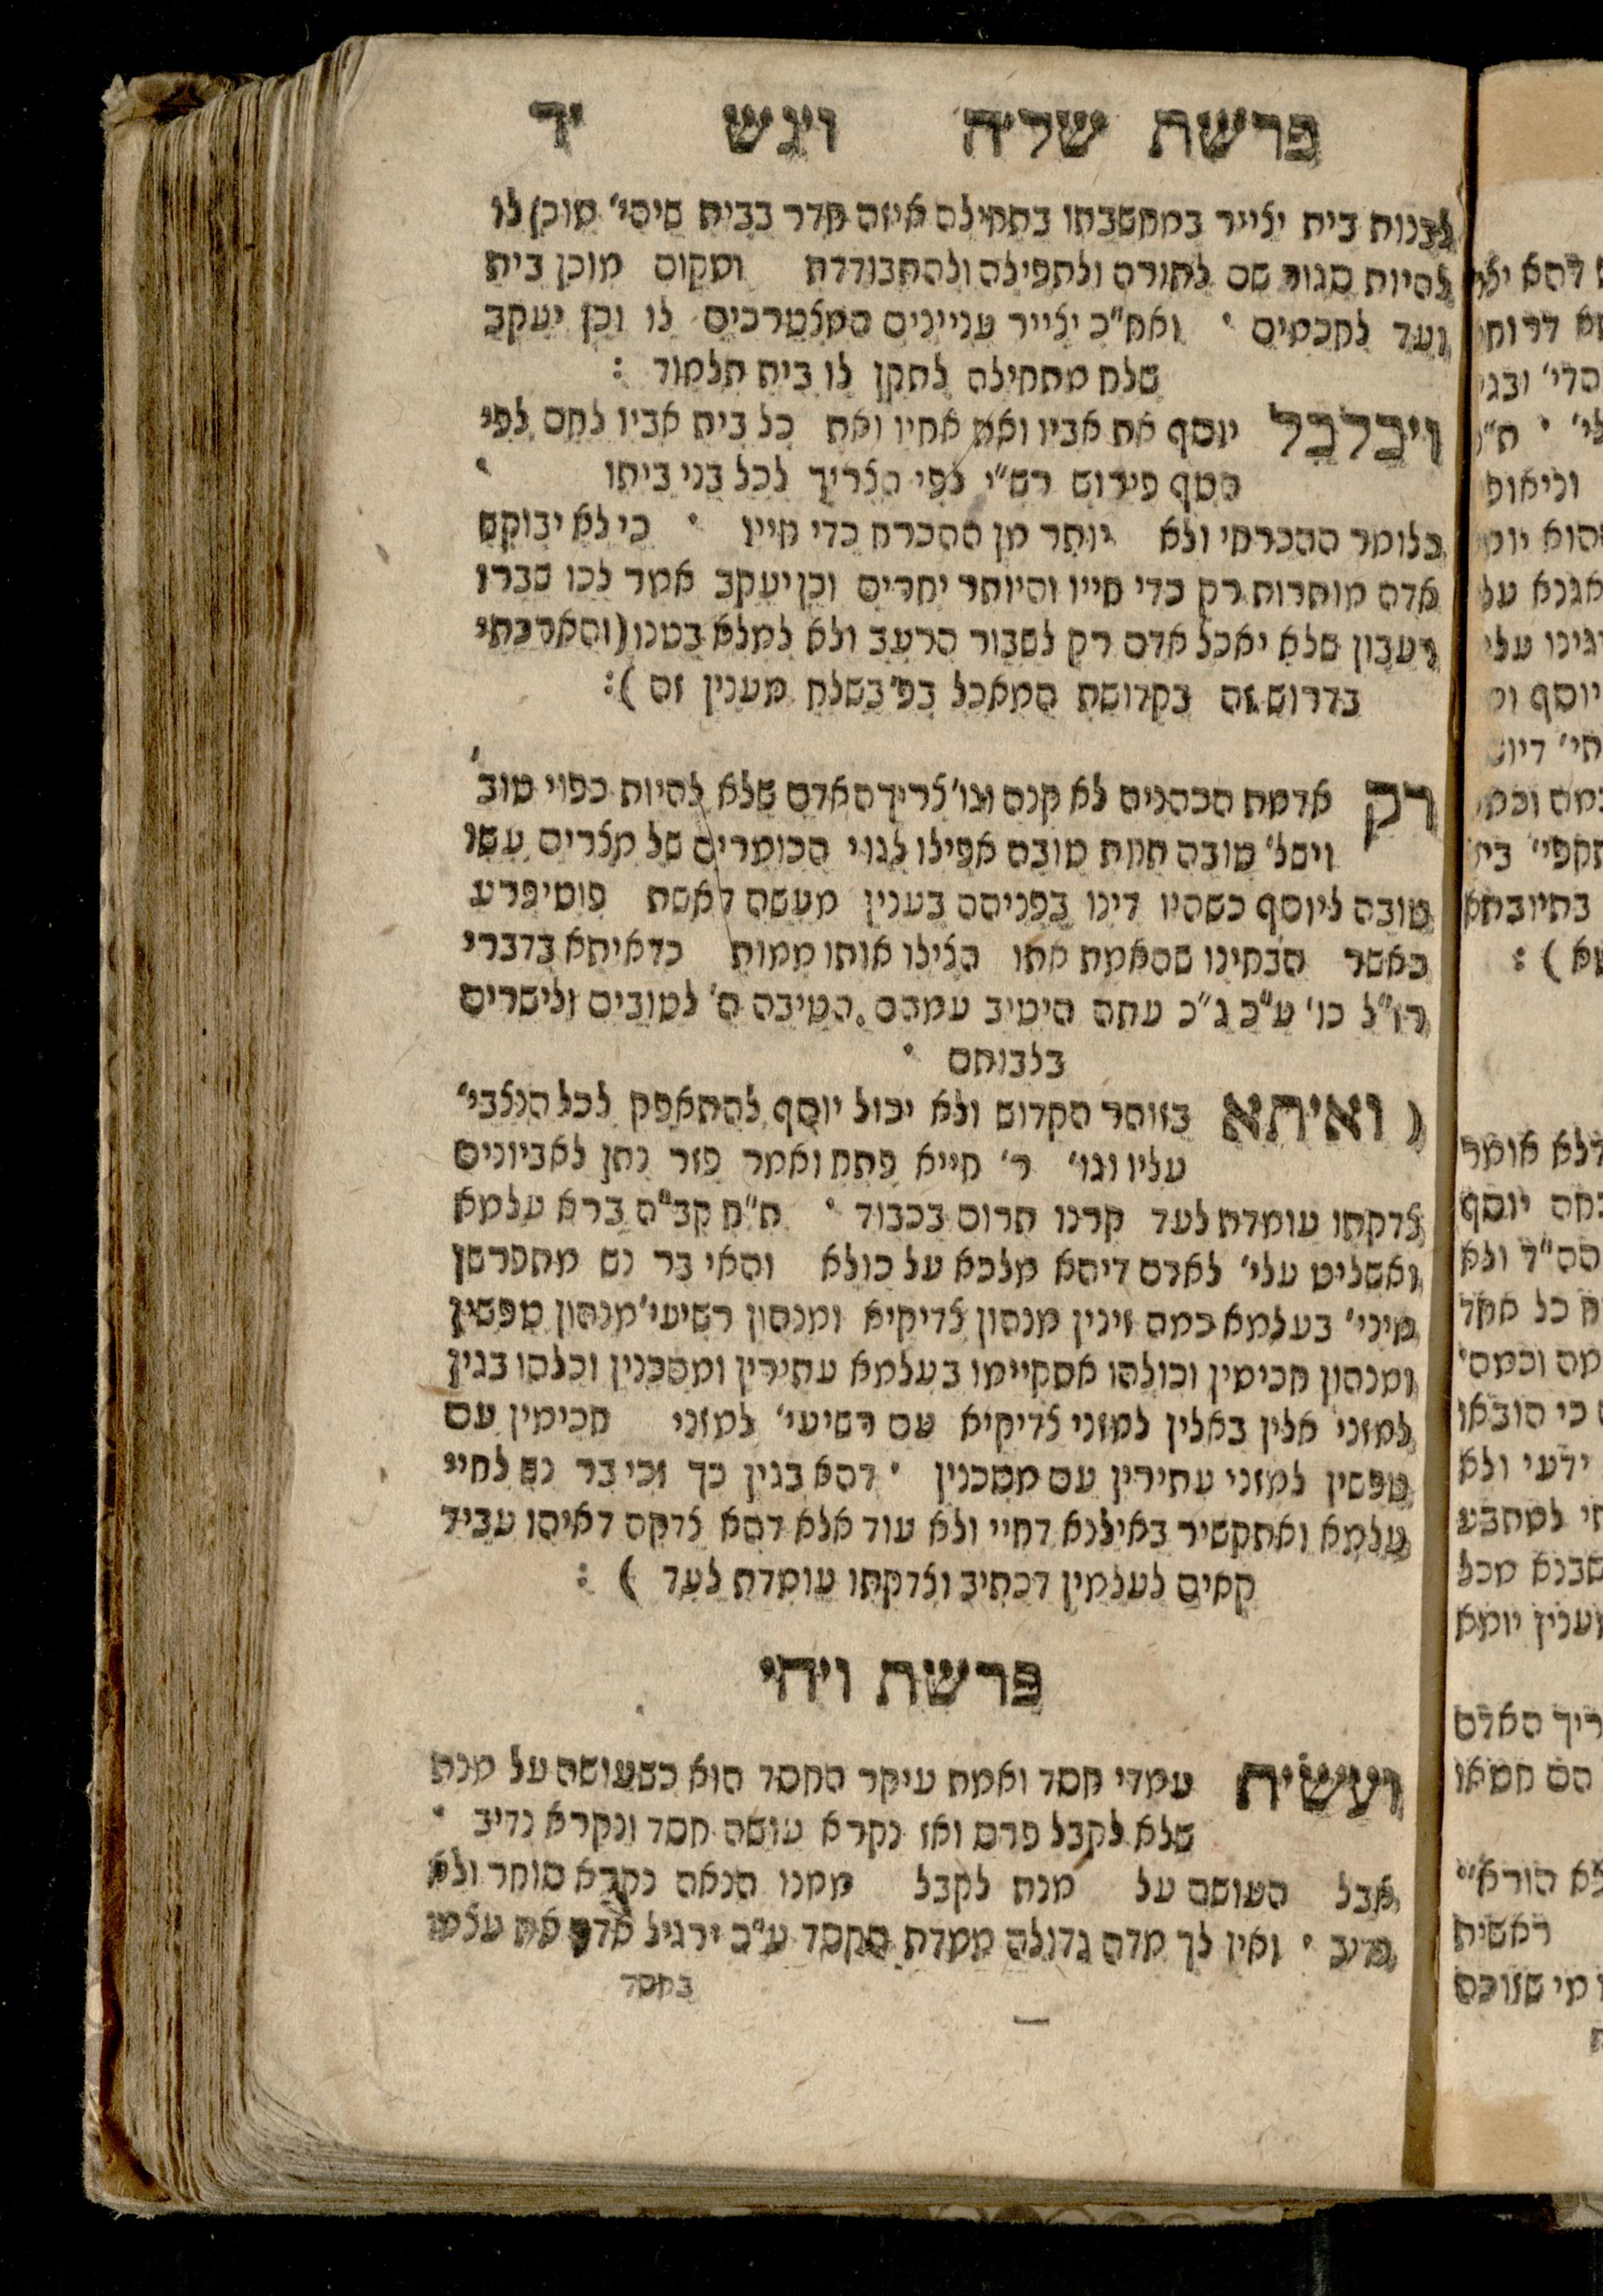 פרשת שליה ויגש יד
לבנות בית יצייר במחשבתו בתחילה איזה חדר בבית שיהי' מוכן לו
להיות סגור שם לתורה ולתפילה ולהתבודדת ומקום מוכן בית
ועד לחכמים ' ואח"כ יצייר עניינים המצטרכים לו וכן יעקב
שלח מתחילה לתקן לו בית תלמוד :
ויכלכל יוסף את אביו ואת אחיו ואת כל בית אביו לחם לפי
הטף פירוש רש"י לפי הצריך לכל בני ביתו '
כלומר ההכרחי ולא יותר מן ההכרח כדי חייו ' כי לא יבוקש
אדם מותרות רק כדי חייו והיותר יחרים וכן יעקב אמר לכו שברו
רעבון שלא יאכל אדם רק לשבור הרעב ולא למלא בטנו (והארכתי
בדרוש זה בקדושת המאכל בפ' בשלח מענין זה ):
רק אדמת הכהנים לא קנה וגו' צריך האדם שלא להיות כפוי טוב'
וישל' טובה תחת טובה אפילו לגוי הכומרים של מצרים עשו
טובה ליוסף כשהיו דינו בפניהם בענין מעשה דאשת פוטיפרע
כאשר הבחינו שהאמת אתו הצילו אותו ממות כדאיתא בדברי
רז"ל כו' ע"כ ג"כ עתה היטיב עמהם . הטיבה ה' לטובים ולישרים
בלבותם '
( ואיתא בזוהר הקדוש ולא יכול יוסף להתאפק לכל הנצבי'
עליו וגו' ר' חייא פתח ואמר פזר נתן לאביונים
צדקתו עומדת לעד קרנו תרום בכבוד ' ת"ח קב"ה ברא עלמא
ואשליט עלי' לאדם דיהא מלכא על כולא והאי בר נש מתפרשן
מיני' בעלמא כמה זינין מנהון צדיקיא ומנהון רשיעי' מנהון טפשין
ומנהון חכימין וכולהו אתקיימו בעלמא עתירין ומסכנין וכלהו בגין
למזכי אלין באלין למזכי צדיקיא עם רשיעי' למזכי חכימין עם
טפשין למזכי עתירין עם מסכנין ' דהא בגין כך זכי בר נש לחיי
עלמא ואתקשיר באילנא דחיי ולא עוד אלא דהא צדקה דאיהו עביד
קאים לעלמין דכתיב וצדקתו עומדת לעד ) :
פרשת ויחי
ועשית עמדי חסד ואמת עיקר החסד הוא כשעושה על מנת
שלא לקבל פרס ואז נקרא עושה חסד ונקרא נדיב '
אבל העושה על מנת לקבל ממנו הנאה נקרא סוחר ולא
נדיב ' ואין לך מדה גדולה ממדת החסד ע"כ ירגיל אדם את עצמו
בחסד